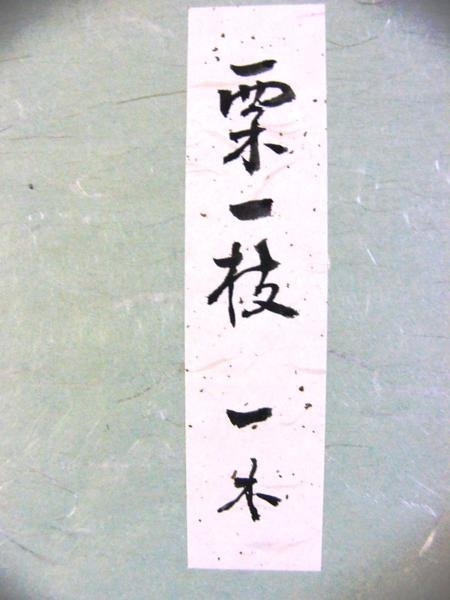 栗一枝 一木